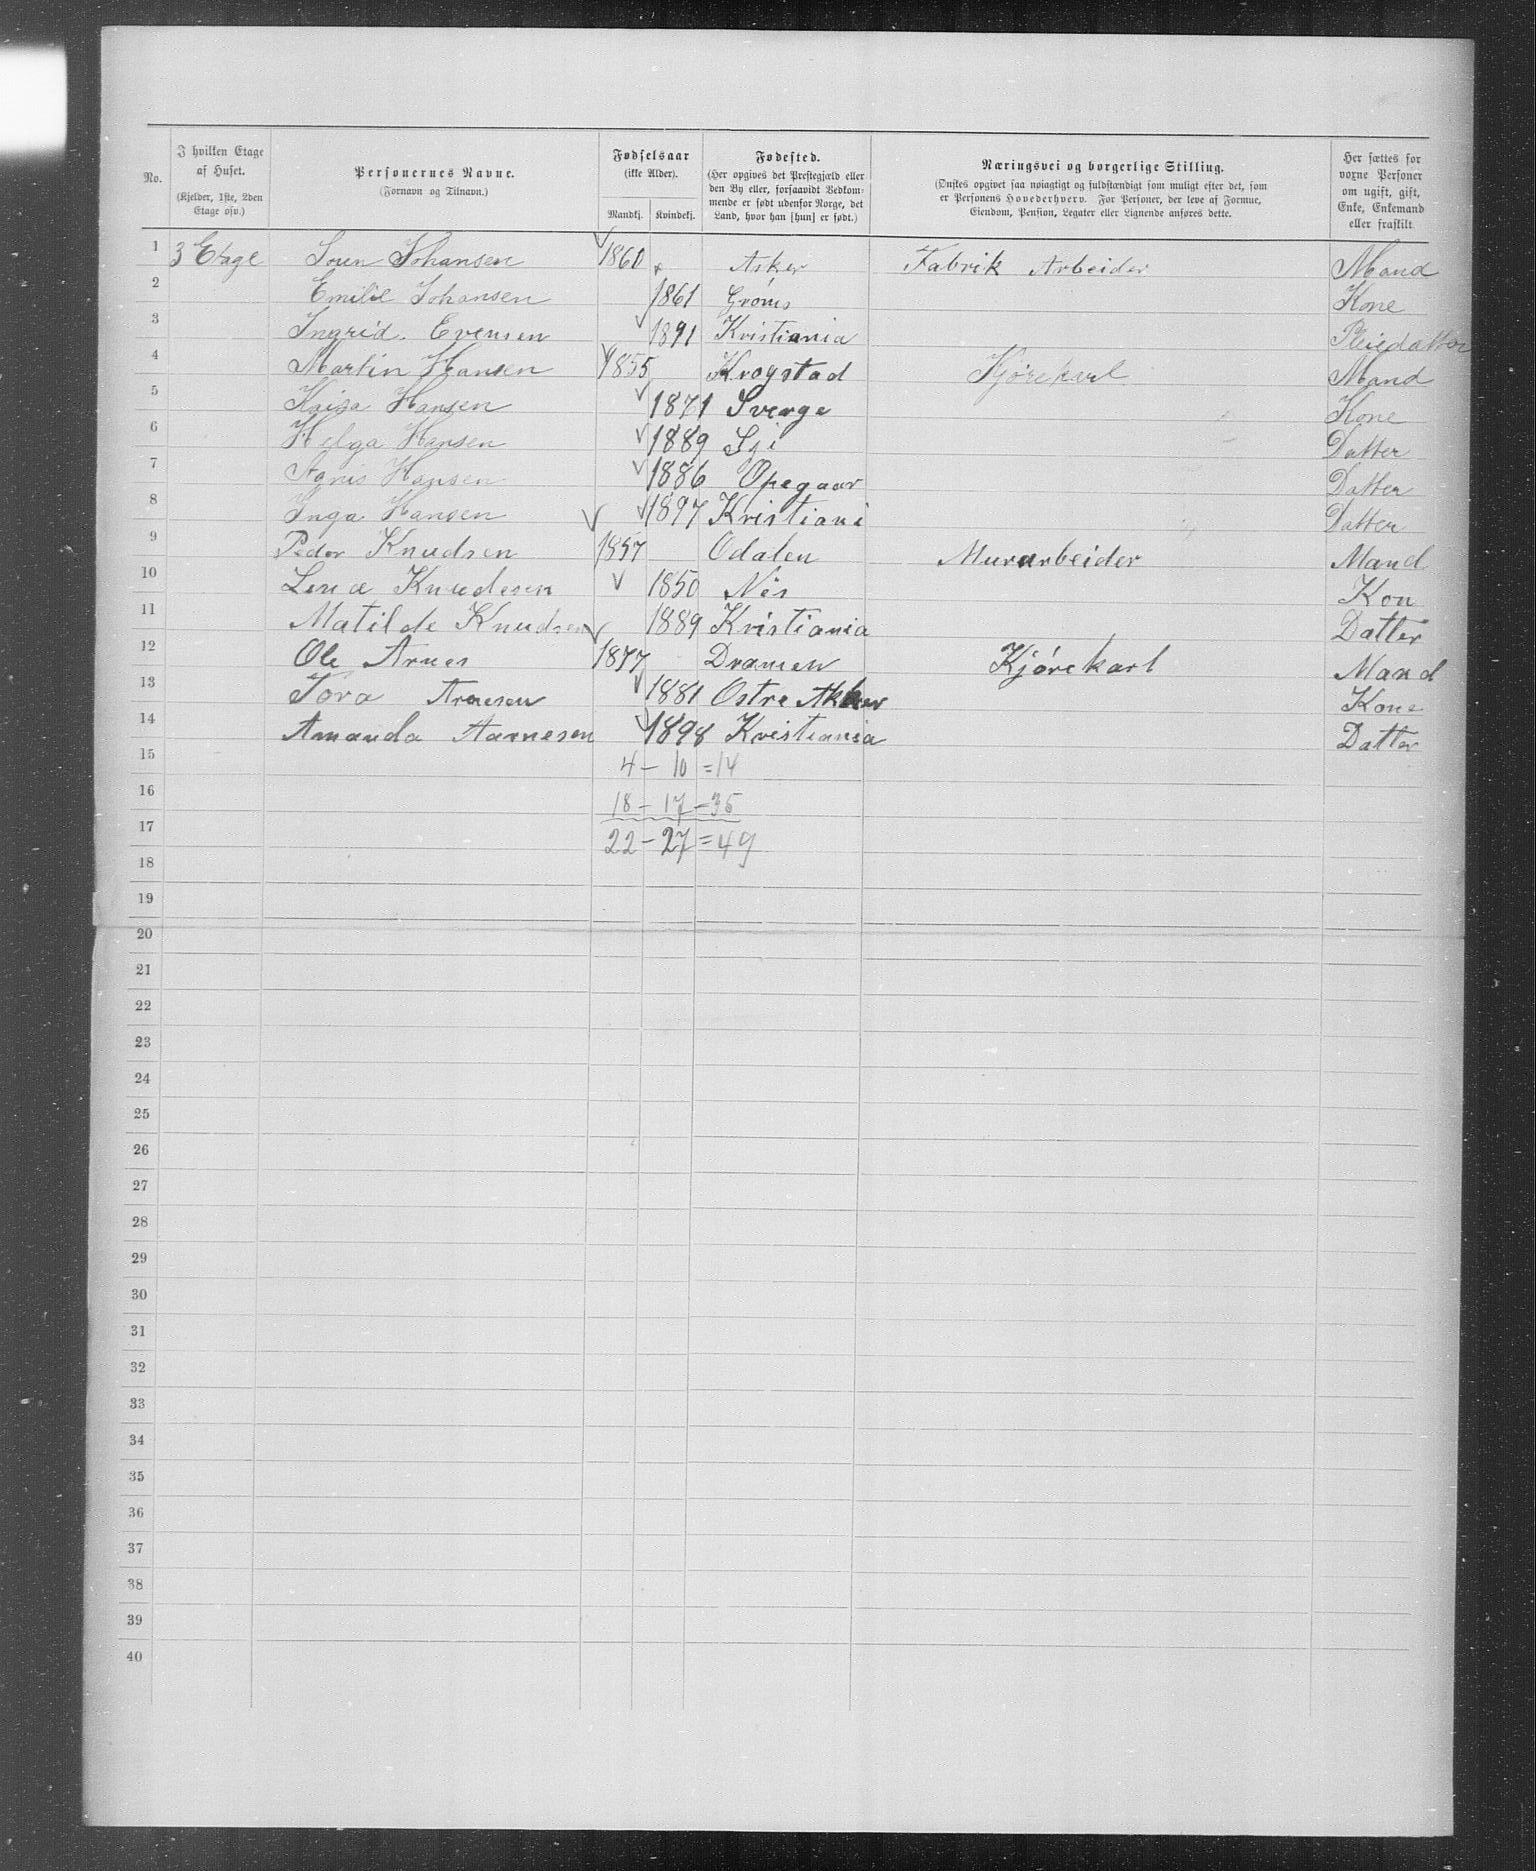 No.
I hvilken Etage af Huset.
(Kjelder, 1ste, 2den Etage osv.)
Personernes Navne.
(Fornavn og Tilnavn.)
Fødselsaar
(ikke Alder).
Mandkj. Kvindekj.
Fødested.
(Her opgives det Prestegjæld eller den By eller, forsaavidt Vedkommende er født udenfor Norge, det Land, hvor han [hun] er født.)
Næringsvei og borgerlige Stilling.
(Ønskes opgivet saa nøiagtigt og fuldstændigt som muligt efter det, som er Personens Hovederhverv. For Personer, der leve af Formue, Eiendom, Pension, Legater eller Lignende anføres dette.
Her sættes for voxne Personer om ugift, gift, Enke, Enkemand eller fraskilt
1 3 Etage Soren Johansen 1860 Asker Fabrik Arbeider Mand
2 Emilie Johansen 1861 Kone
3 Ingrid. Evensen 1891 Kristiania Pleiedatter
4 Martin Hansen 1855 Krogstad Kjørekarl Mand
5 Kaisa Hansen 1871 Sverge Kone
6 Helga Hansen 1889 Ski Datter
7 Agnis Hansen 1886 Opegaar Datter
8 Inga Hansen 1897 Kristiani Datter
9 Peder Knudsen 1857 Odalen Murarbeider Mand
10 Lena Knudesen 1850 Nes Kon
11 Matilde Knudsen 1889 Kristiania Datter
12 Ole Arnes 1877 Dramen Kjørekarl Mand
13 Tora Arnesen 1881 Ostre Akker Kone
14 Amanda Aarnesen 1898 Kristiania Datter
15 4 – 10 = 14
16 18 – 17 – 35
17 22 – 27 = 49
18
19
20
21
22
23
24
25
26
27
28
29
30
31
32
33
34
35
36
37
38
39
40